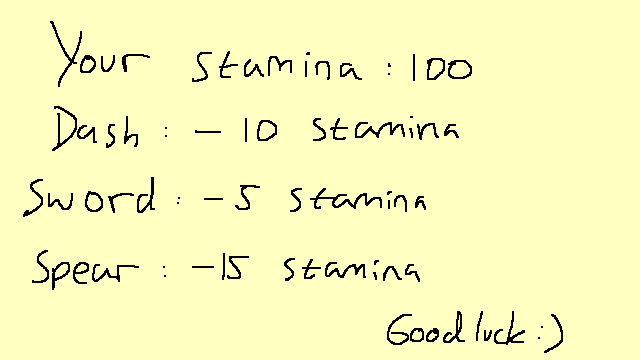 Your stamina : 100
Dash : - 10 stamina
Sword : - 5 stamina
Spear : -15 stamina
Good luck :)